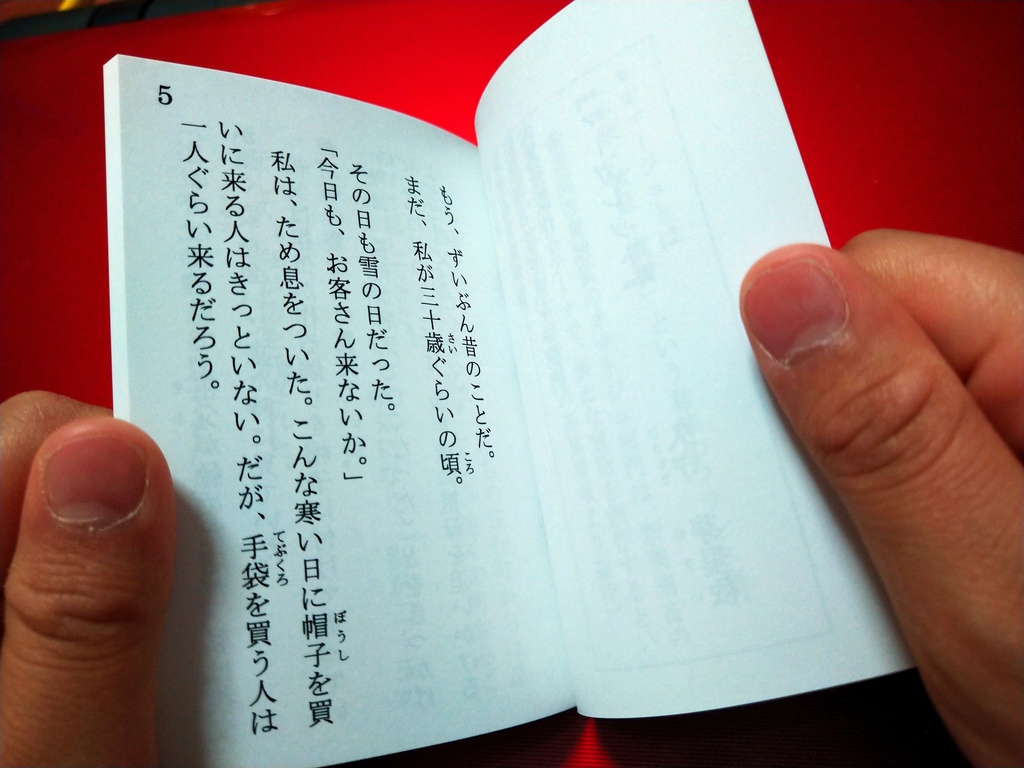 もう、ずいぶん昔のことだ。
まだ、私が三十歳ぐらいの頃。
その日も雪の日だった。
「今日も、お客さん来ないか。」
私は、ため息をついた。こんな寒い日に帽子を買
いに来る人はきっといない。だが、手袋を買う人は
一人ぐらい来るだろう。
さい
ころ
ぼうし
てぶくろ
5